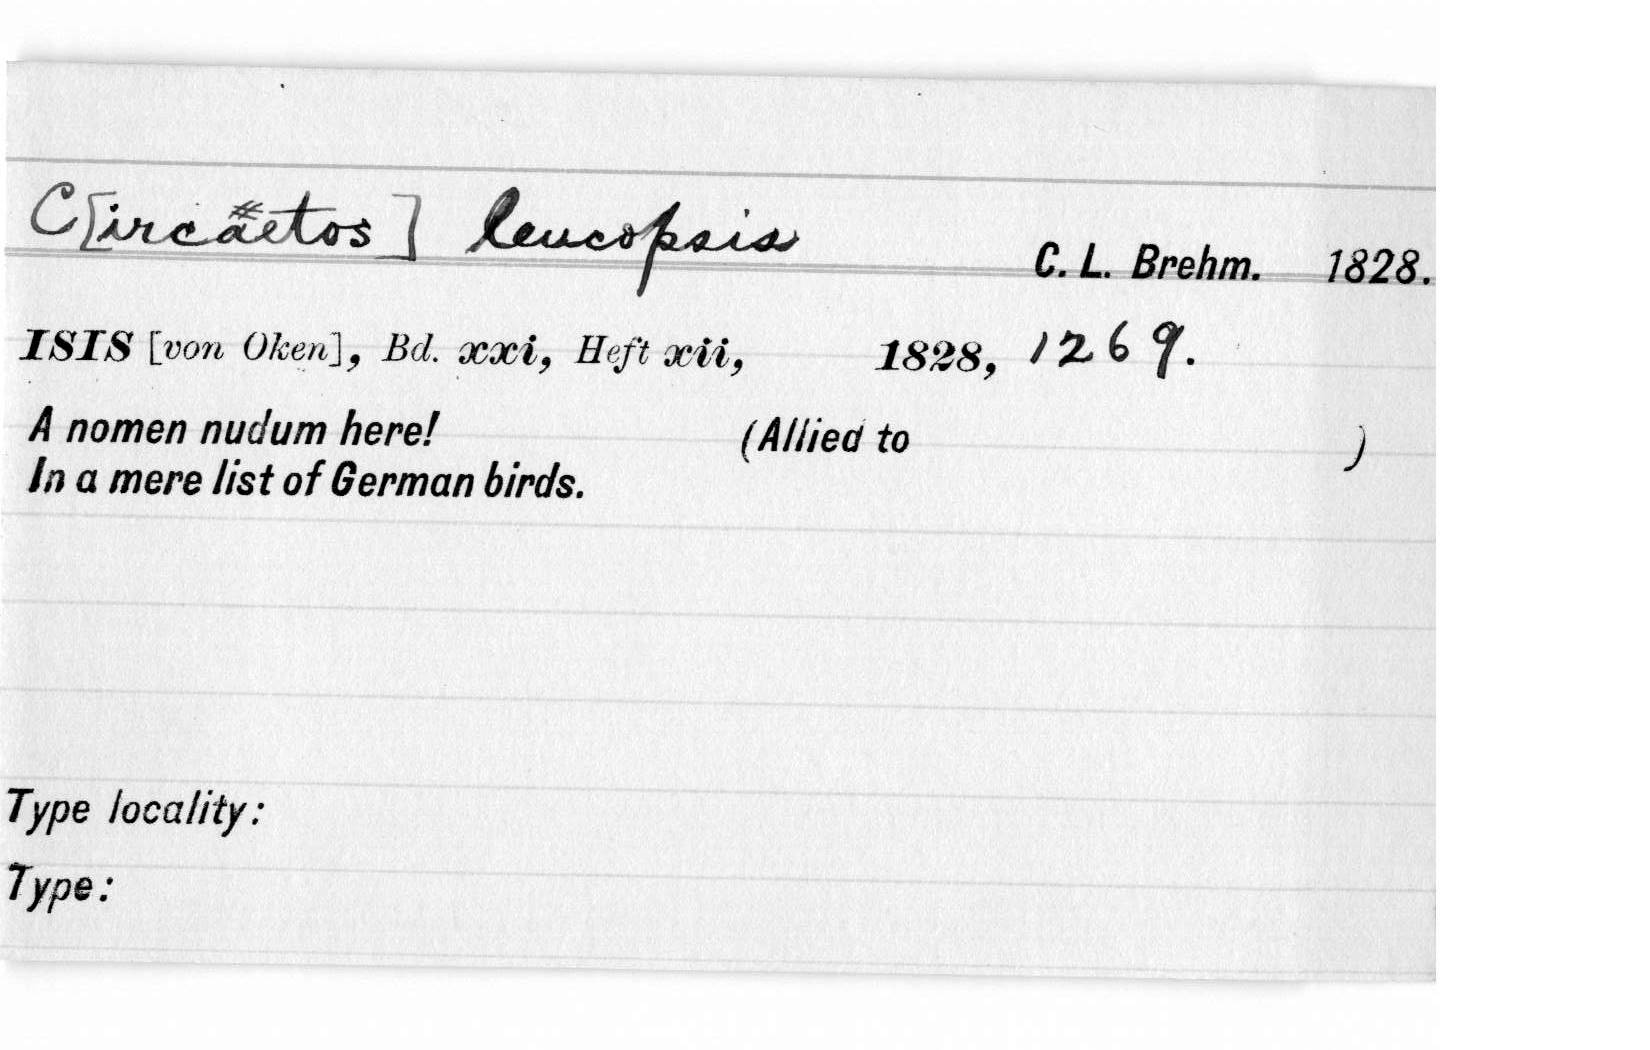 C[ircaëtos] leucopsis
C. L. Brehm. 1828.
ISIS [von Oken], Bd. xxi, Heft xii, 1828, 1269.
A nomen nudum here! (Allied to )
In a mere list of German birds.
Type locality:
Type: